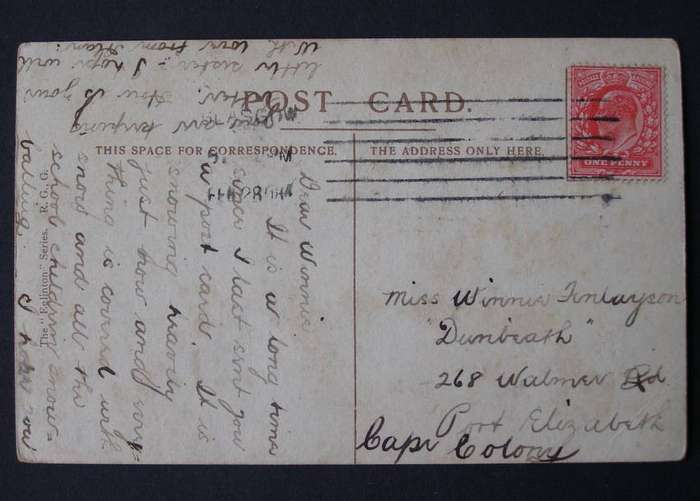 POST CARD.
THIS SPACE FOR CORRESPONDENCE.
THE ADDRESS ONLY HERE.
ONE PENNY
Dear Winnie
It is a long time
since I last sent you
a post card. It is
snowing heavily
just now and every=
thing is covered with
snow and all the
school children snow=
balling. I hope you
are keeping
better. How is your
little sister - I hope well
With love from
Miss Winnie Finlayson
"Dunbeath"
268 Walmer Rd
Port Elizabeth
Cape Colony
The " Ellinton" Series. R. G. G.